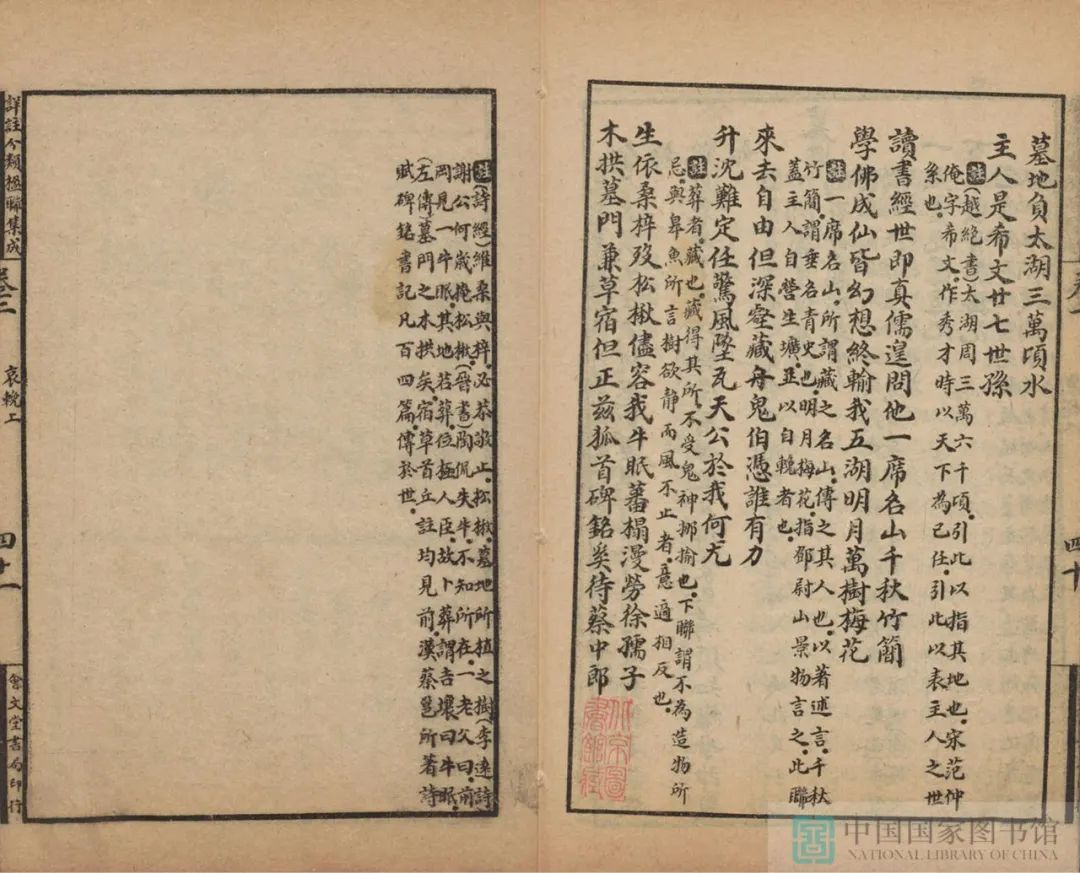 墓地負太湖三萬頃水
主人是希文廿七世孫
註(越絶書)太湖周三萬六千頃。引此以指其地也。宋范仲
俺字希文。作秀才時以天下為己任。引此以表主人之世
系也。
讀書經世即真儒遑問他一席名山千秋竹簡
學佛成仙皆幻想終輸我五湖明月萬樹梅花
註一席名山。所謂藏之名山。傳之其人也。以著述言。千秋
竹簡。謂垂名青史也。明月梅花。指鄧尉山景物言之。此聯
蓋主人自營生壙。並以自輓者也。
來去自由但深壑藏舟鬼伯憑誰有力
升沈難定任驚風墜瓦天公於我何尤
註葬者。藏也。藏得其所。不受鬼神揶揄也。下聯謂不為造物所
忌。與皋魚所言樹欲靜而風不止者。意適相反也。
生依桑梓歿松楸儘容我牛眠蕃榻漫勞徐孺子
木拱墓門兼草宿但正茲狐首碑銘奚待蔡中郎
四十
註(詩經)維桑與梓。必恭敬止。松楸。墓地所植之樹(李遠詩
謝公何歲掩松楸(晉書)陶侃失牛。不知所在。一老父曰。前
岡見一牛眠。其地若葬。位極人臣。故卜葬謂吉壤曰牛眠。
(左傳)墓門之木拱矣。宿草首丘註均見前。漢蔡邕所著詩
賦碑銘書記凡百四篇。傳於世。
詳註分類楹聯集成
卷三
哀輓上
四十一
會文堂書局印行
中国国家图书馆
NATIONAL LIBRARY OF CHINA